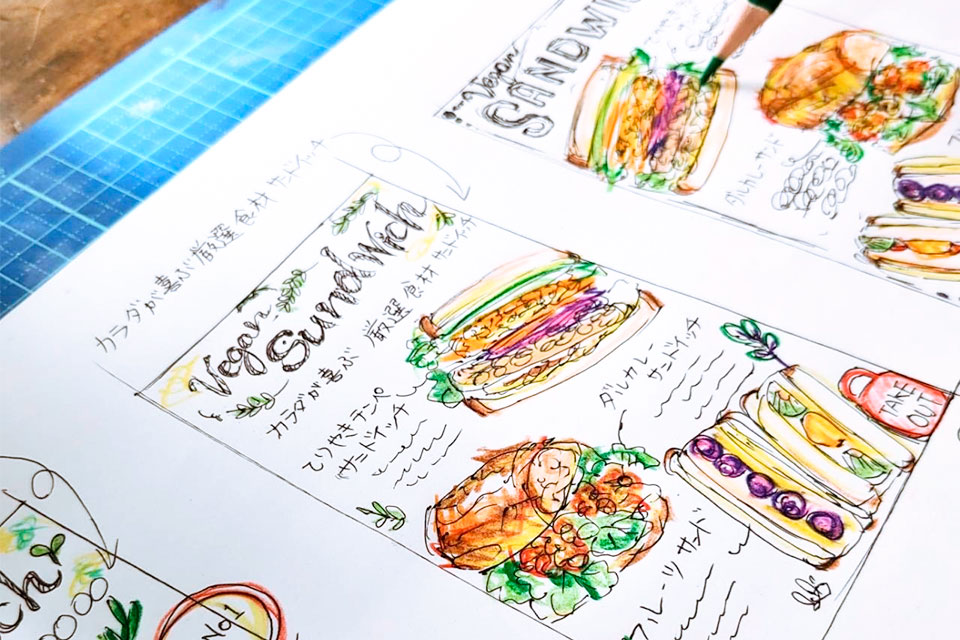 Vegan
SANDWI
ダルカレーサンド
カラダが喜ぶ厳選食材サンドイッチ
Vegan
SundWich
カラダが喜ぶ 厳選食材サンドイッチ
てりやきテンペ
サンドイッチ
ダルカレー
サンドイッチ
TAKE
OUT
フルーツサンド
ch
No1